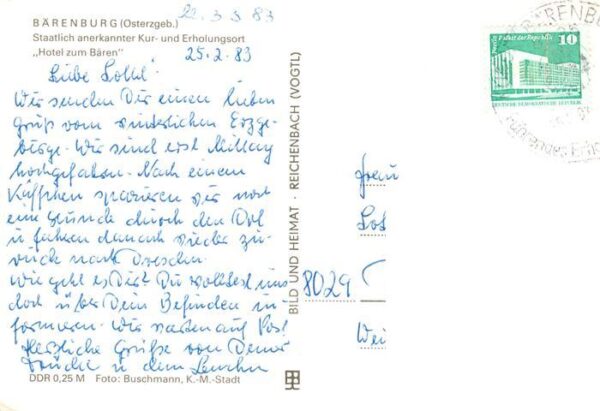 22.3.83
BÄRENBURG (Osterzgeb.)
Staatlich anerkannter Kur- und Erholungsort
„Hotel zum Bären"
25.2.83
Liebe
Wir senden Dir einen lieben
Gruß vom winterlichen Erzge-
birge. Wir sind erst Mittag
hochgefahren. Nach einem
Käffchen spazieren wir noch
eine Stunde durch den Ort
u fahren danach wieder zu-
rück nach Dresden.
Wie geht es Dir? Du wolltest uns
doch über Dein Befinden in-
formieren. Wir warten auf Post
Herzliche Grüße von Deiner
u dem
DDR 0,25 M Foto: Buschmann, K.-M.-Stadt
BILD UND HEIMAT · REICHENBACH (VOGTL)
Berlin, Palast der Republik
10
DEUTSCHE DEMOKRATISCHE REPUBLIK
BÄRENBURG
Frau
Lot
8029
Wei